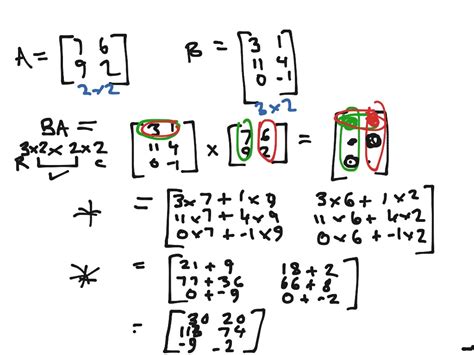 A = [7 6
9 2]
2×2
B = [3 1
11 4
0 -1]
3×2
BA =
3×2 × 2×2
R C
[3 1
11 4
0 -1] × [7 6
9 2] = [ ]
= [3×7+1×9 3×6+1×2
11×7+4×9 11×6+4×2
0×7+-1×9 0×6+-1×2]
= [21+9 18+2
77+36 66+8
0+-9 0+-2]
= [30 20
113 74
-9 -2]